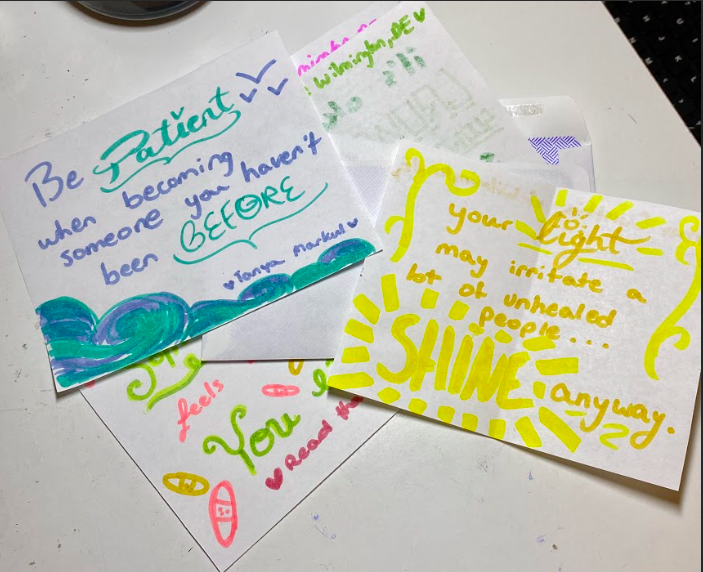 Be Patient
when becoming
someone you haven't
been BEFORE
Tanya Markul
Wilmington, DE
your light
may irritate a
lot of unhealed
people...
SHINE
anyway.
feels
You
Read